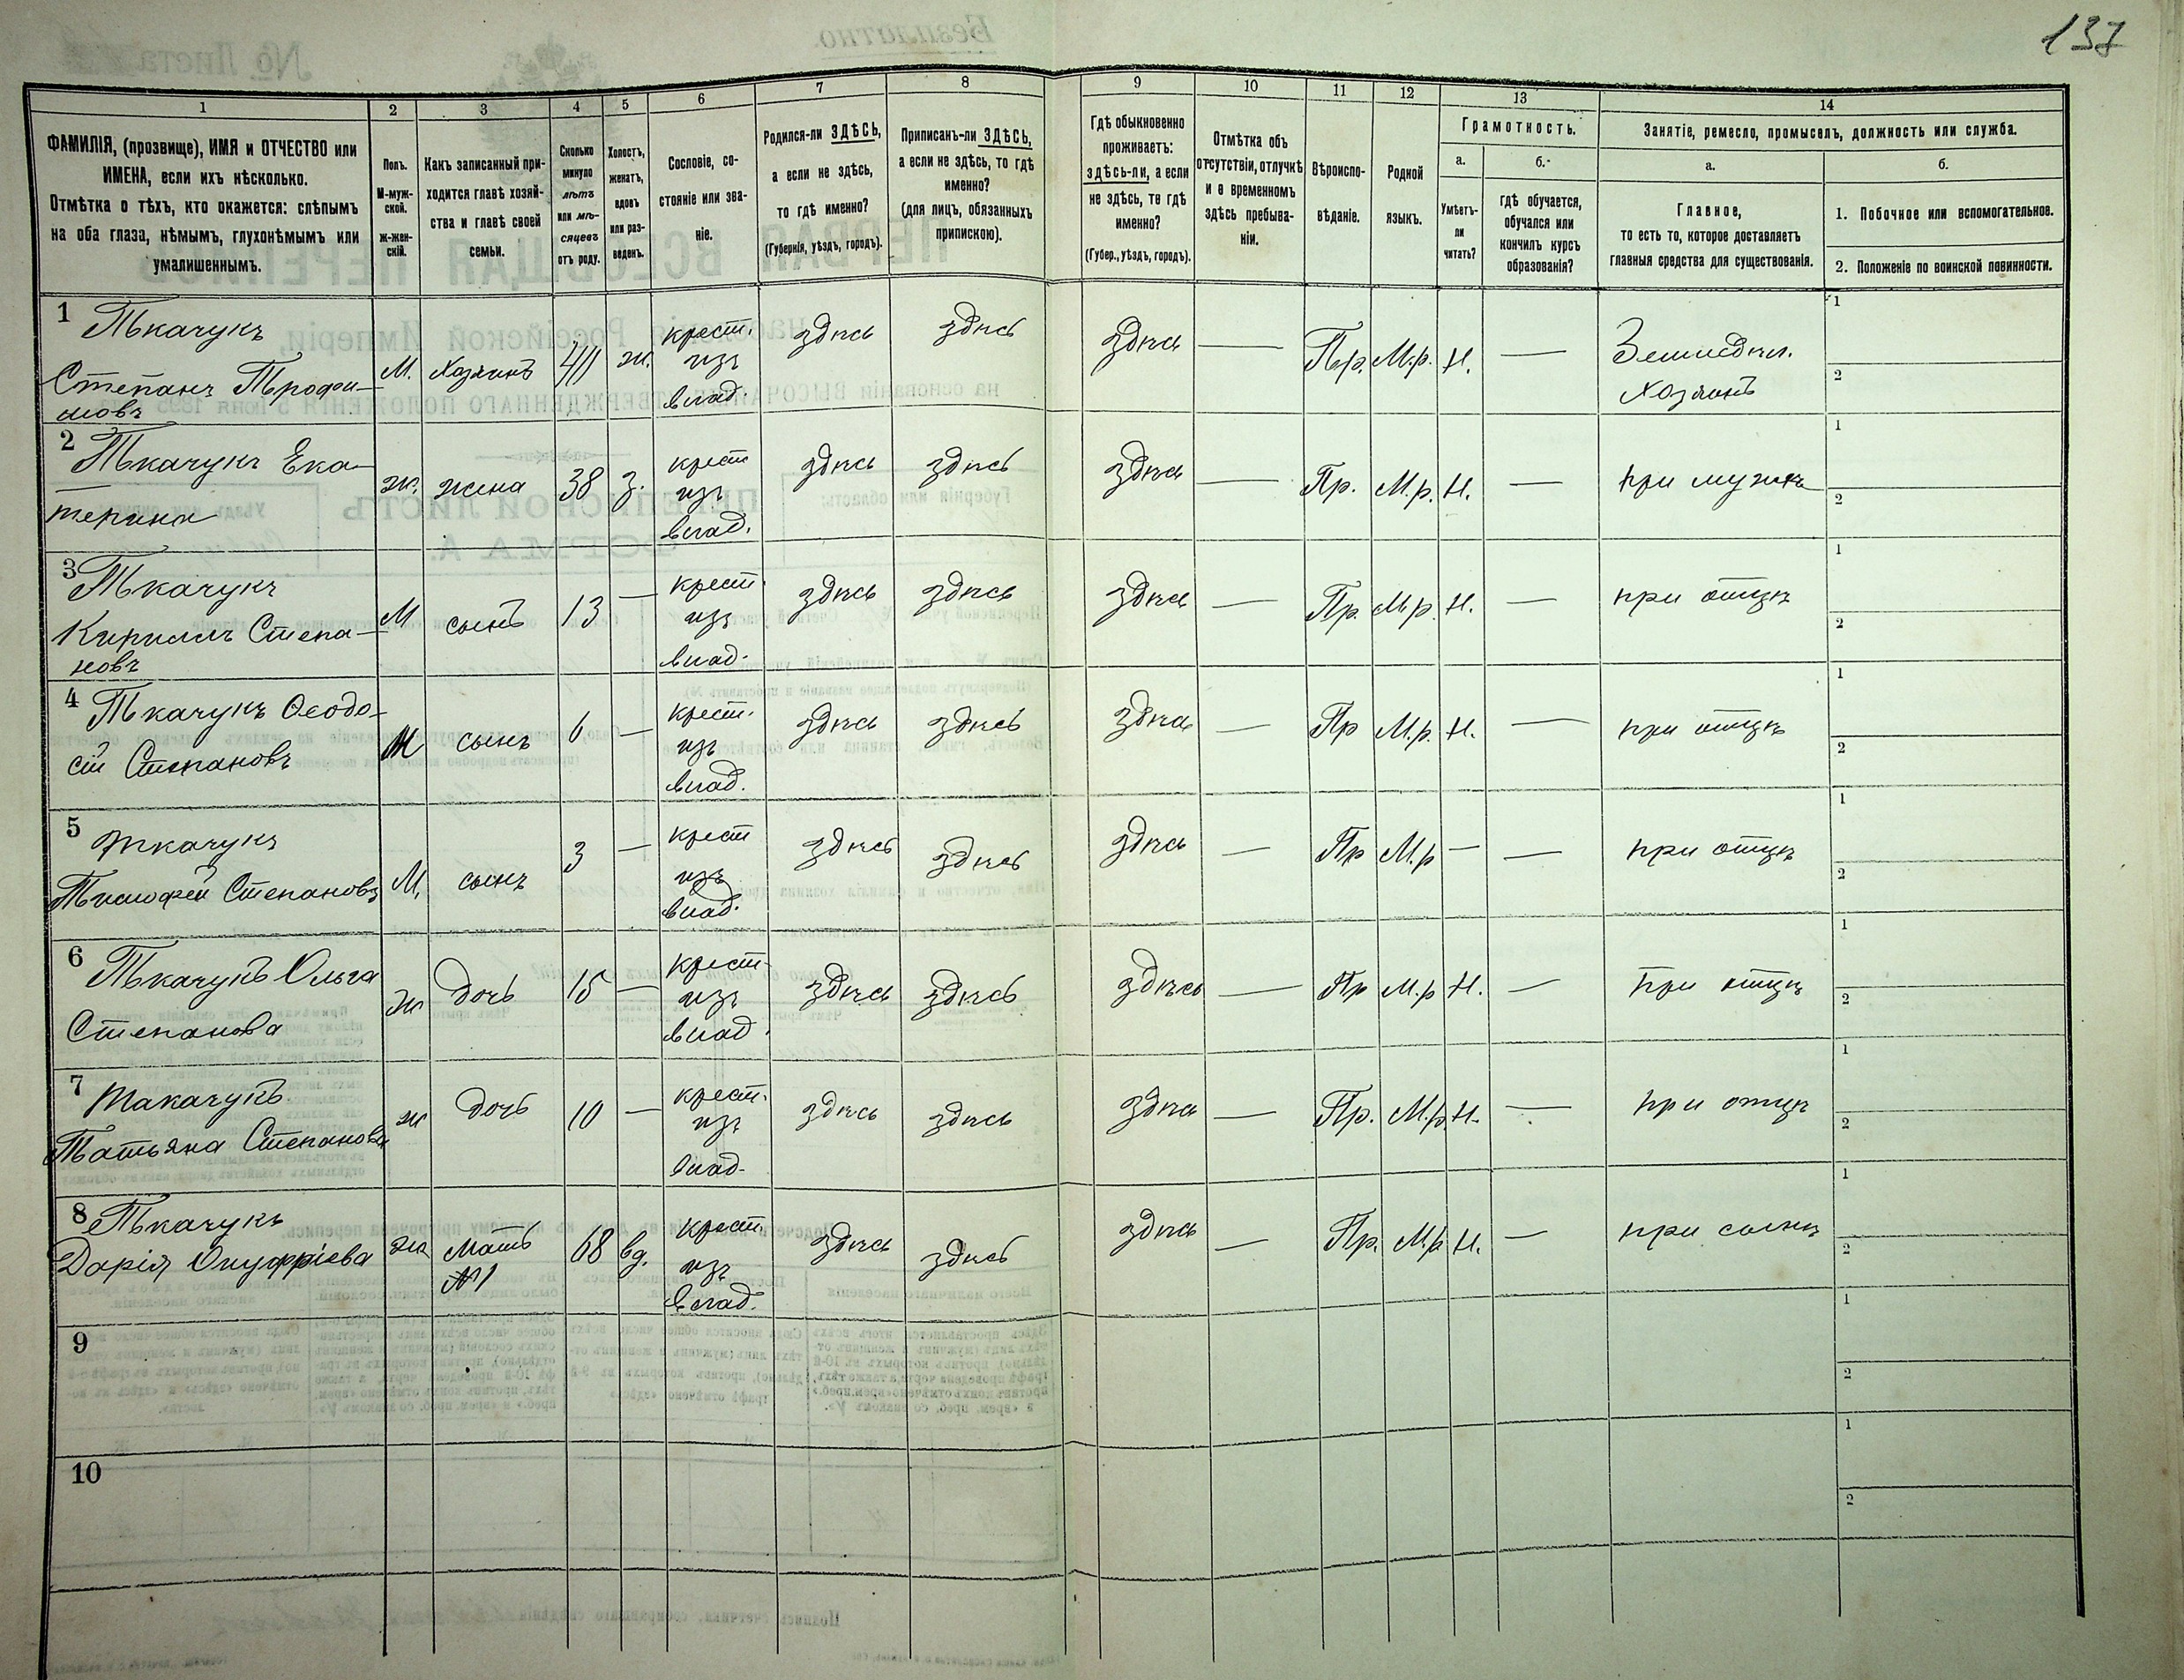 137
1
2
3
4
5
6
7
8
9
10
11
12
13
14
ФАМИЛІЯ, (прозвище), ИМЯ и ОТЧЕСТВО или
ИМЕНА, если ихъ нѣсколько.
Отмѣтка о тѣхъ, кто окажется: слѣпымъ
на оба глаза, нѣмымъ, глухонѣмымъ или
умалишеннымъ.
Полъ.
М-муж-
ской.
Ж-жен-
скій.
Какъ записанный при-
ходится главѣ хозяй-
ства и главѣ своей
семьи.
Сколько
минуло
лѣтъ
или мѣ-
сяцевъ
отъ роду.
Холостъ,
женатъ,
вдовъ
или раз-
веденъ.
Сословіе, со-
стояніе или зва-
ніе.
Родился-ли ЗДѢСЬ,
а если не здѣсь,
то гдѣ именно?
(Губернія, уѣздъ, городъ).
Приписанъ-ли ЗДѢСЬ,
а если не здѣсь, то гдѣ
именно?
(для лицъ, обязанныхъ
припискою).
Гдѣ обыкновенно
проживаетъ:
здѣсь-ли, а если
не здѣсь, то гдѣ
именно?
(Губер., уѣздъ, городъ).
Отмѣтка объ
отсутствіи, отлучкѣ
и о временномъ
здѣсь пребыва-
ніи.
Вѣроиспо-
вѣданіе.
Родной
языкъ.
Грамотность.
а.
б.
Умѣетъ-
ли
читать?
гдѣ обучается,
обучался или
кончилъ курсъ
образованія?
Занятіе, ремесло, промыселъ, должность или служба.
а.
б.
Главное,
то есть то, которое доставляетъ
главныя средства для существованія.
1. Побочное или вспомогательное.
2. Положеніе по воинской повинности.
1 Ткачукъ
Степанъ Трофи-
мовъ
М. Хозяинъ 40 ж. крест. изъ влад. здѣсь здѣсь здѣсь — Пр. М.р. Н. — Земледѣл. хозяинъ 1 2
2 Ткачукъ Ека-
терина
ж. жена 38 з. крест изъ влад. здѣсь здѣсь здѣсь — Пр. М.р. Н. — при мужѣ 1 2
3 Ткачукъ
Кириллъ Степа-
новъ
М сынъ 13 — крест. изъ влад. здѣсь здѣсь здѣсь — Пр. М.р. Н. — при отцѣ 1 2
4 Ткачукъ Ѳеодо-
сій Степановъ
М сынъ 6 — крест. изъ влад. здѣсь здѣсь здѣсь — Пр М.р. Н. — при отцѣ 1 2
5 Ткачукъ
Тимофей Степановъ
М. сынъ 3 — крест изъ влад. здѣсь здѣсь здѣсь — Пр М.р — — при отцѣ 1 2
6 Ткачукъ Ольга
Степанова
ж дочь 15 — крест. изъ влад. здѣсь здѣсь здѣсь — Пр М.р Н. — При отцѣ 1 2
7 Такачукъ
Татьяна Степанова
ж дочь 10 — крест. изъ влад. здѣсь здѣсь здѣсь — Пр. М.р. Н. — при отцѣ 1 2
8 Ткачукъ
Дарія Онуфріева
ж мать №1 68 вд. крест. изъ влад. здѣсь здѣсь здѣсь — Пр. М.р Н. — при сынѣ 1 2
9 1 2
10 1 2